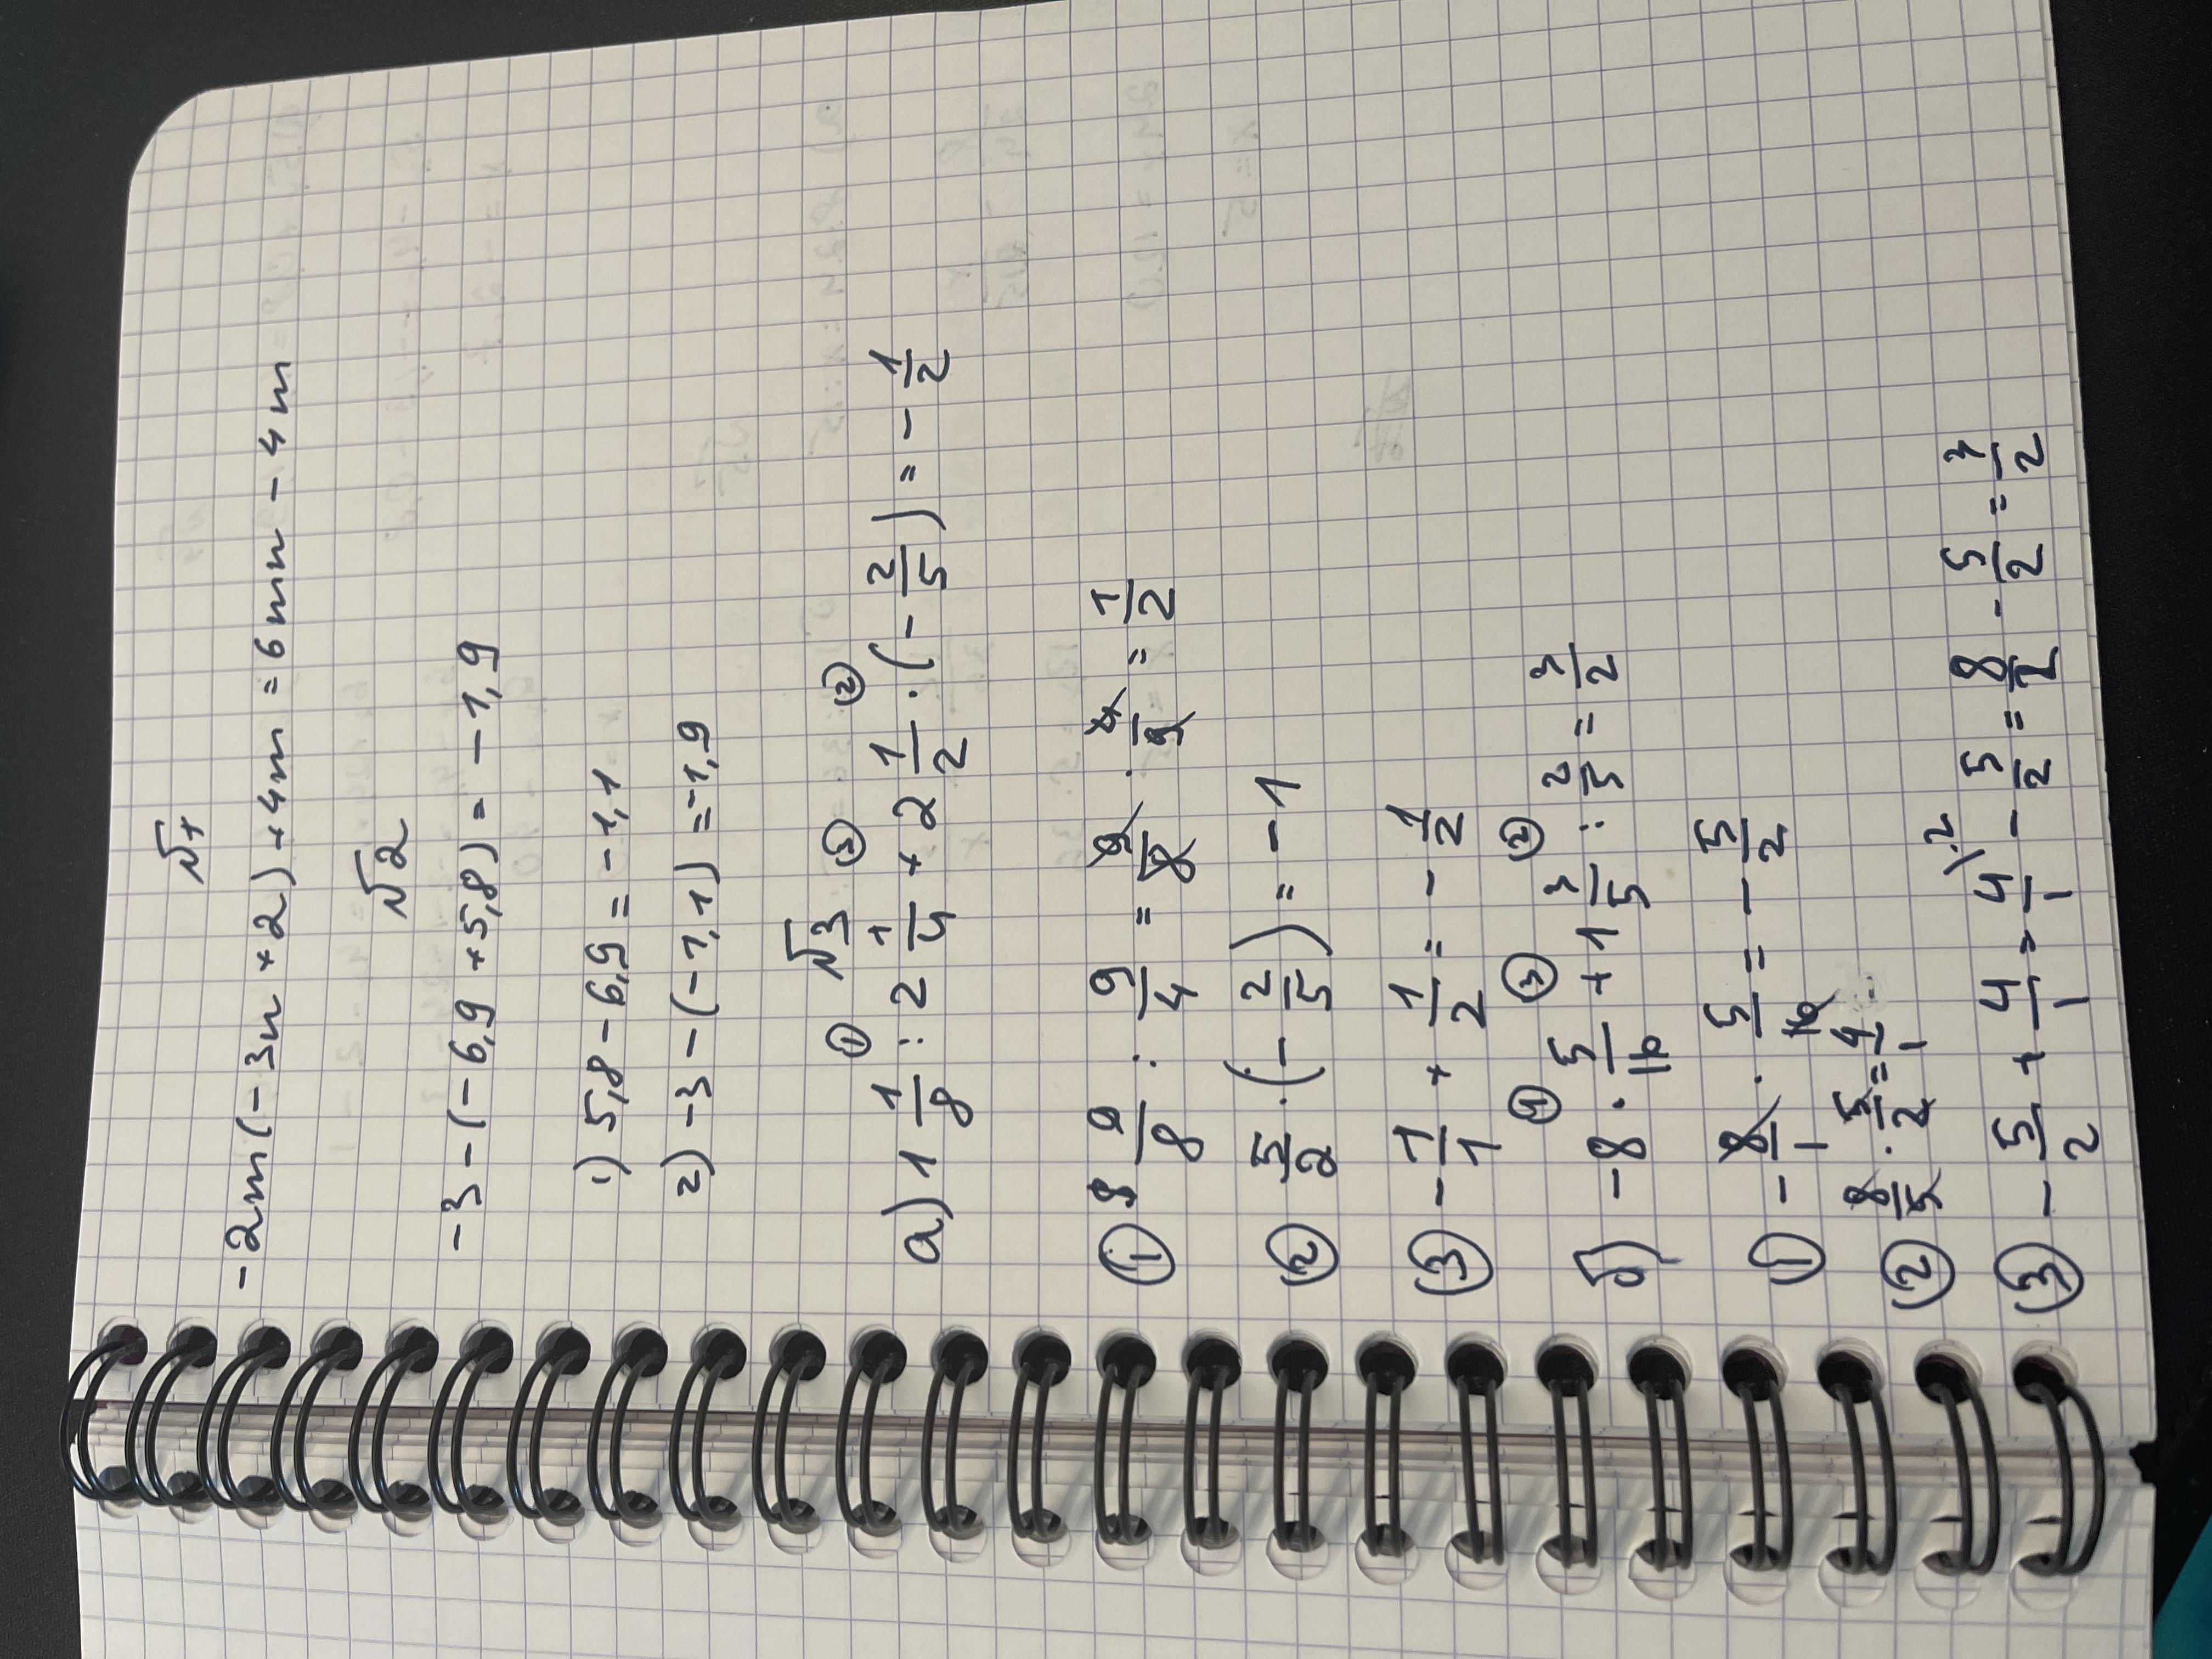 №1
-2m(-3n+2)+4m = 6mn - 4m
№2
-3-(-6,9+5,8) = -1,9
1) 5,8-6,9 = -1,1
2) -3-(-1,1) = -1,9
№3
① ③ ②
а) 1 1/8 : 2 1/4 + 2 1/2 · (-2/5) = -1/2
① 9/8 : 9/4 = 9/8 · 4/9 = 1/2
② 5/2 · (-2/5) = -1
③ -1/1 + 1/2 = -1/2
① ③ ②
б) -8 · 5/16 + 1 3/5 : 2/5 = 3/2
① -8/1 · 5/16 = -5/2
② 8/5 · 5/2 = 4/1
③ -5/2 + 4/1 = 4/1 \·2 - 5/2 = 8/2 - 5/2 = 3/2